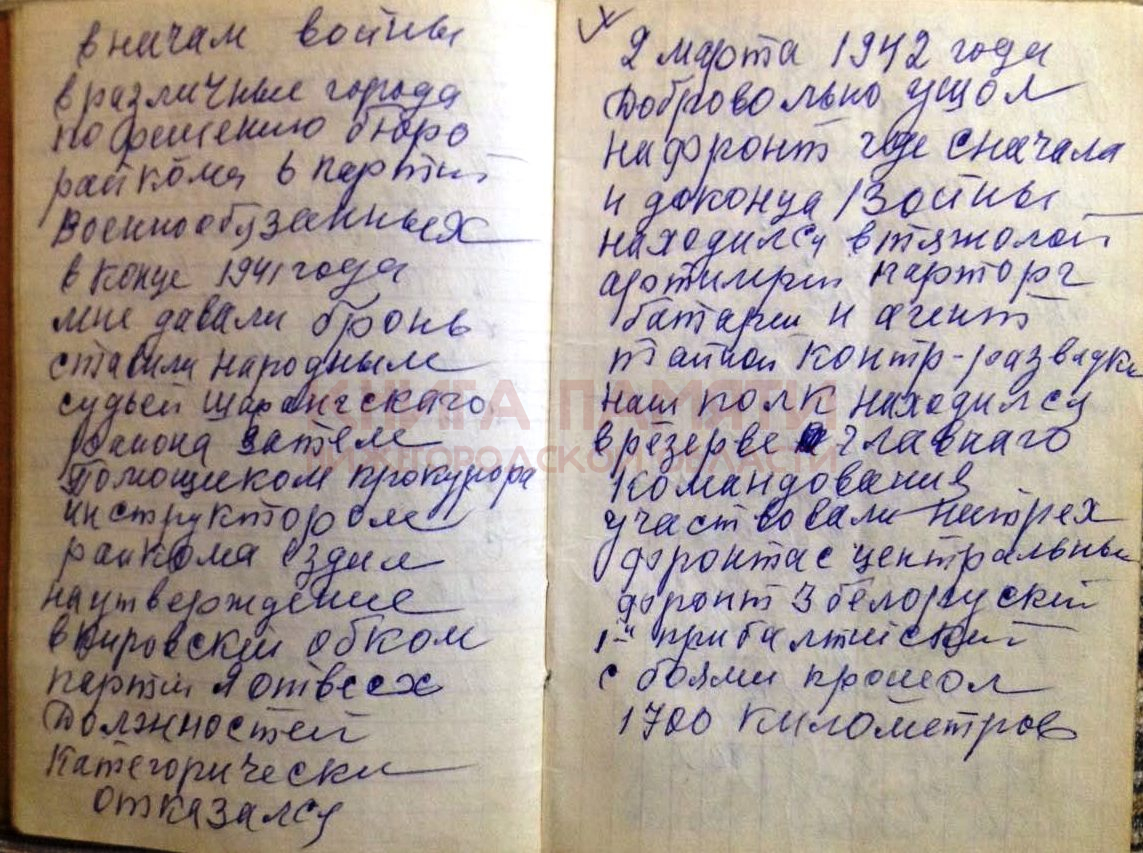 в начам войны
в различные города
по решению бюро
райкома в партий
военнообязанных
в конце 1941 года
мне давали бронь
ставили народным
судьей Шарангскаго
района затем
Помощиком прокурора
инструктором
райкома ездил
на утверждение
в Кировский обком
партии я от всех
Должностей
Категорически
отказался
2 марта 1942 года
Добровольно ушол
на фронт где сначала
и до конца Войны
находился в тяжолой
артилерии парторг
батареи и агент
тайной контр-разведки
наш полк находился
в резерве главнаго
командования
участвовали на трех
фронтас центральны
фронт 3 белоруский
1-й прибалтийский
с боями прошол
1700 километров
КНИГА ПАМЯТИ
НИЖЕГОРОДСКОЙ ОБЛАСТИ